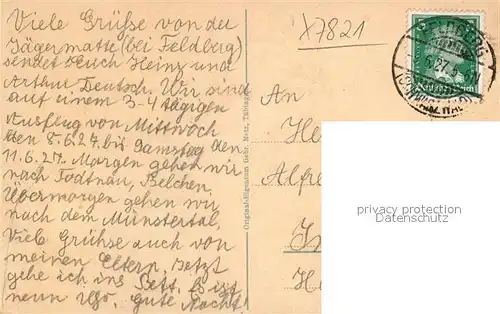 Viele Grüße von der
Jägermatte (bei Feldberg)
sendet Euch Heinz und
Arthur Deutsch. Wir sind
auf unem 3-4 tägigen
Ausflug von Mittwoch
den 8.6.27. bis Samstag den
11.6.27. Morgen gehen wir
nach Todtnau, Belchen.
Übermorgen gehen wir
nach dem Münstertal.
Viele Grühse auch von
meinen Eltern. Jetzt
gehe ich ins Bett. Es ist
neun Uhr. Gute Nacht!
Original-Eigentum Gebr. Metz, Tübingen
X7821
5
27
An
He
Alfre
He
privacy protection
privacy protection